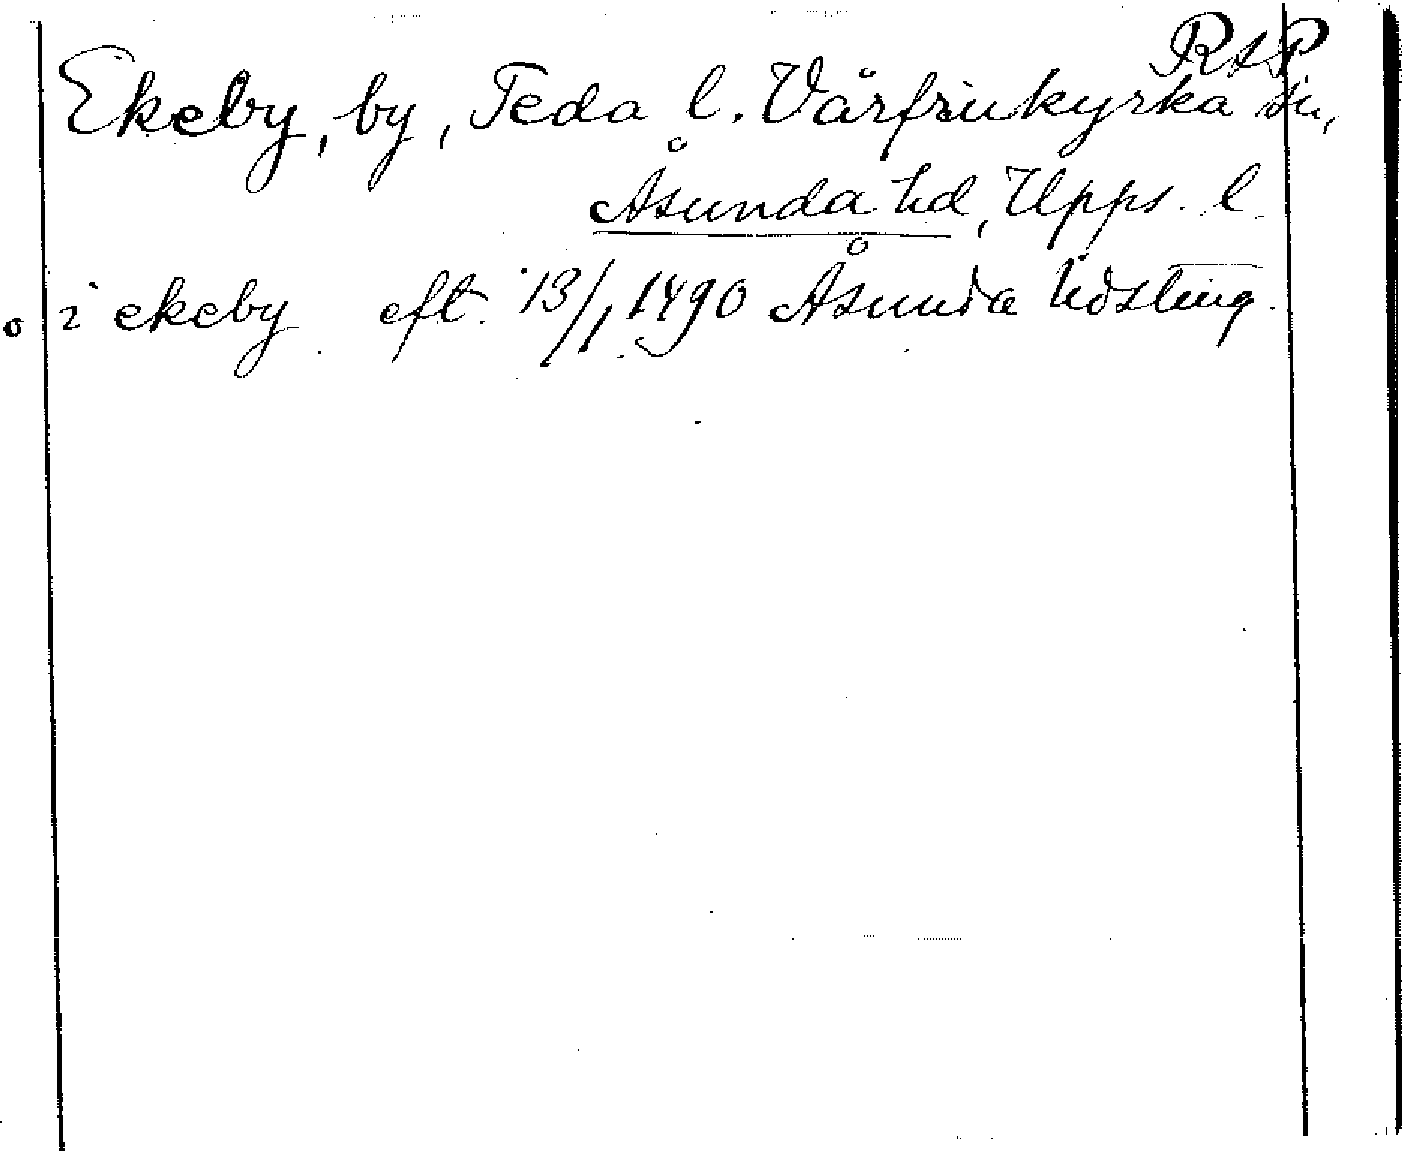 RAP
Ekeby, by, Teda l. Vårfrukyrka sn,
Åsunda hd, Upps. l.
i ekeby eft. 13/1 1490 Åsunda hdsting.